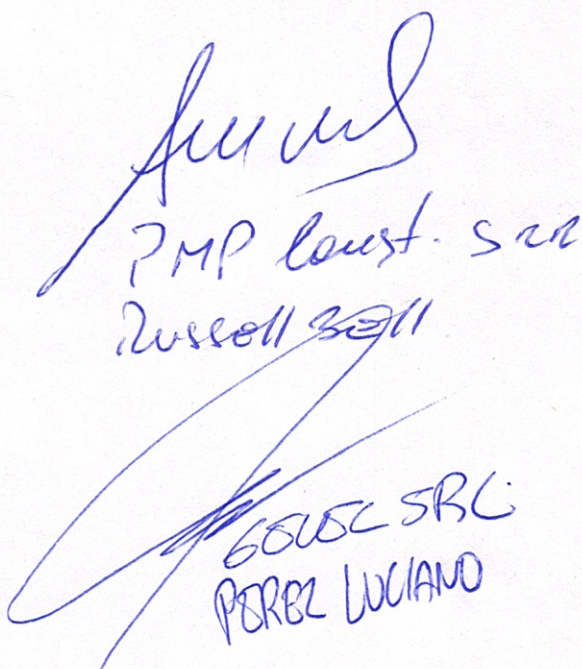 PMP Const. SRL
Russell Bell
SRL
PEREZ LUCIANO